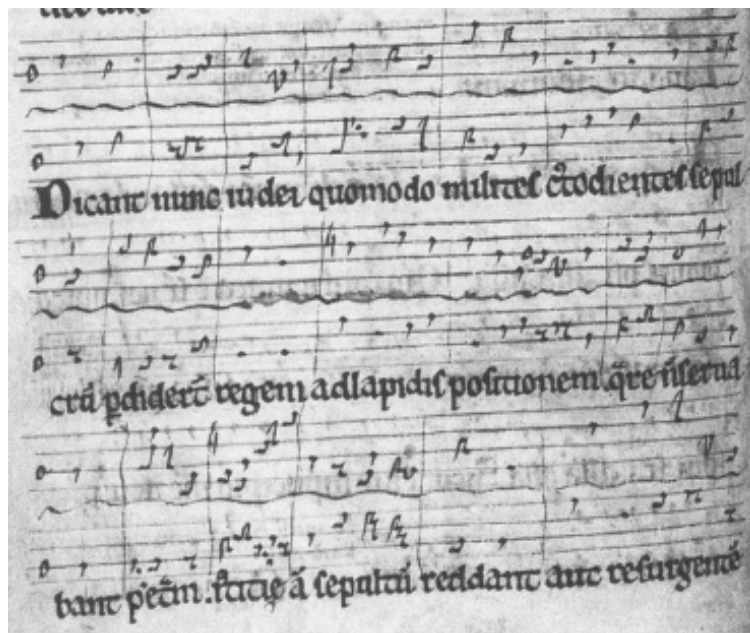 Dicant nunc iudei quomodo milites c̾todientes sepul
crū ꝑdiderūt regem ad lapidis positionem q̄re n̄ serua
bant petrā iusticie ā sepultū reddant aut resurgentē